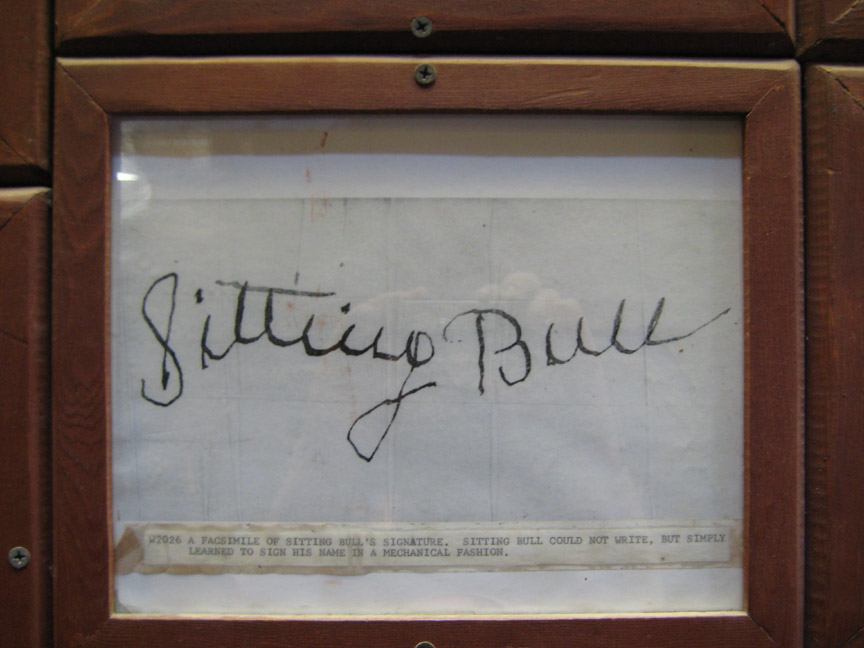 Sitting Bull
W2026 A FACSIMILE OF SITTING BULL'S SIGNATURE. SITTING BULL COULD NOT WRITE, BUT SIMPLY
LEARNED TO SIGN HIS NAME IN A MECHANICAL FASHION.